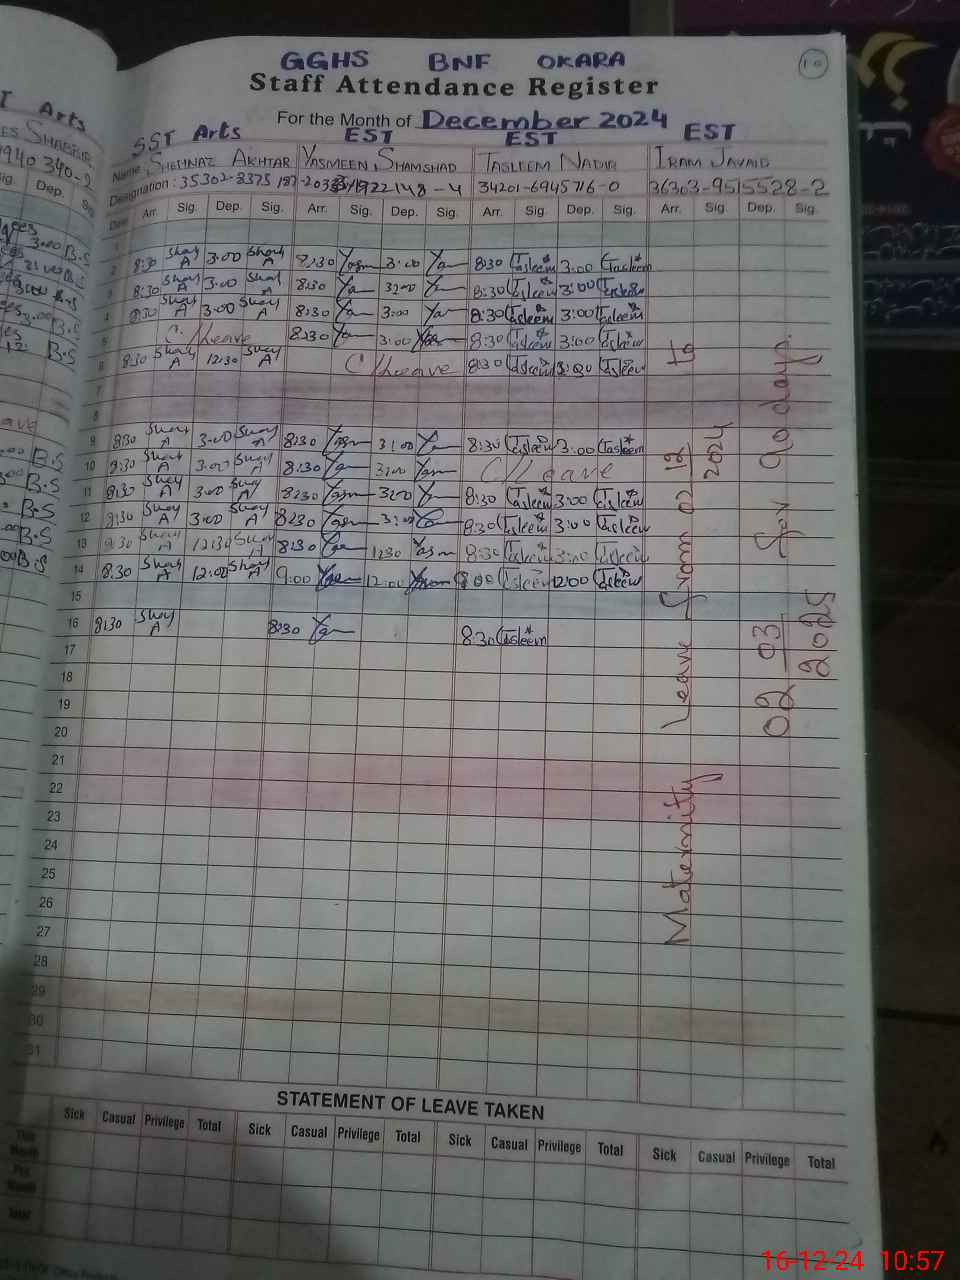 GGHS BNF OKARA
10
Staff Attendance Register
For the Month of December 2024
SST Arts EST EST EST
Name SHEHNAZ AKHTAR YASMEEN SHAMSHAD TASLEEM NADIR IRAM JAVAID
Designation: 34201-6945716-0 36303-9515528-2
Date Arr. Sig. Dep. Sig. Arr. Sig. Dep. Sig. Arr. Sig. Dep. Sig. Arr. Sig. Dep. Sig.
1
2 8:30 Shay A 3:00 Shay A 8:30 Yasm 3:00 Ya 8:30 Tasleem 3:00 Tasleem
3 8:30 Shay A 3:00 Shay A 8:30 Ya 3:00 Ya 8:30 Tasleem 3:00 Tasleem
4 8:30 Shay A 3:00 Shay A 8:30 Ya 3:00 Ya 8:30 Tasleem 3:00 Tasleem
5 C/Leave 8:30 Ya 3:00 Ya 8:30 Tasleem 3:00 Tasleem
6 8:30 Shay A 12:30 Shay A C/Leave 8:30 Tasleem 3:00 Tasleem
7
8
9 8:30 Shay A 3:00 Shay A 8:30 Yasm 3:00 Ya 8:30 Tasleem 3:00 Tasleem
10 8:30 Shay A 3:00 Shay A 8:30 Ya 3:00 Yasm C/Leave
11 8:30 Shay A 3:00 Shay A 8:30 Yasm 3:00 Ya 8:30 Tasleem 3:00 Tasleem
12 8:30 Shay A 3:00 Shay A 8:30 Yasm 3:00 8:30 Tasleem 3:00 Tasleem
13 8:30 Shay A 12:30 Shay A 8:30 12:30 Yasm 8:30 Tasleem 3:00 Tasleem
14 8:30 Shay A 12:00 Shay A 9:00 Yasm 12:00 Yasm 9:00 Tasleem 12:00 Tasleem
15
16 8:30 Shay A 8:30 Ya 8:30 Tasleem
17
18
19
20
21
22
23
24
25
26
27
28
29
30
31
Maternity Leave from 02 12 2024 to
02 03 2025 for 90 days.
STATEMENT OF LEAVE TAKEN
Sick Casual Privilege Total Sick Casual Privilege Total Sick Casual Privilege Total Sick Casual Privilege Total
This Month
Pre. Month
Total
16-12-24 10:57